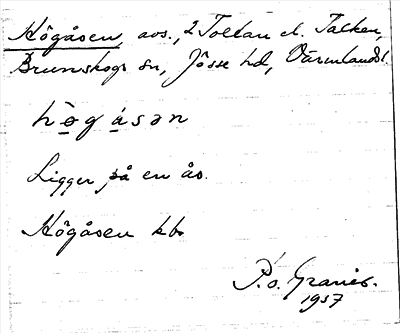 Högåsen, avs., 2 Toltan el. Talken,
Brunskogs sn, Jösse hd, Värmlands l.
hògásən
Ligger på en ås.
Högåsen kbs
P.s. Granér.
1957